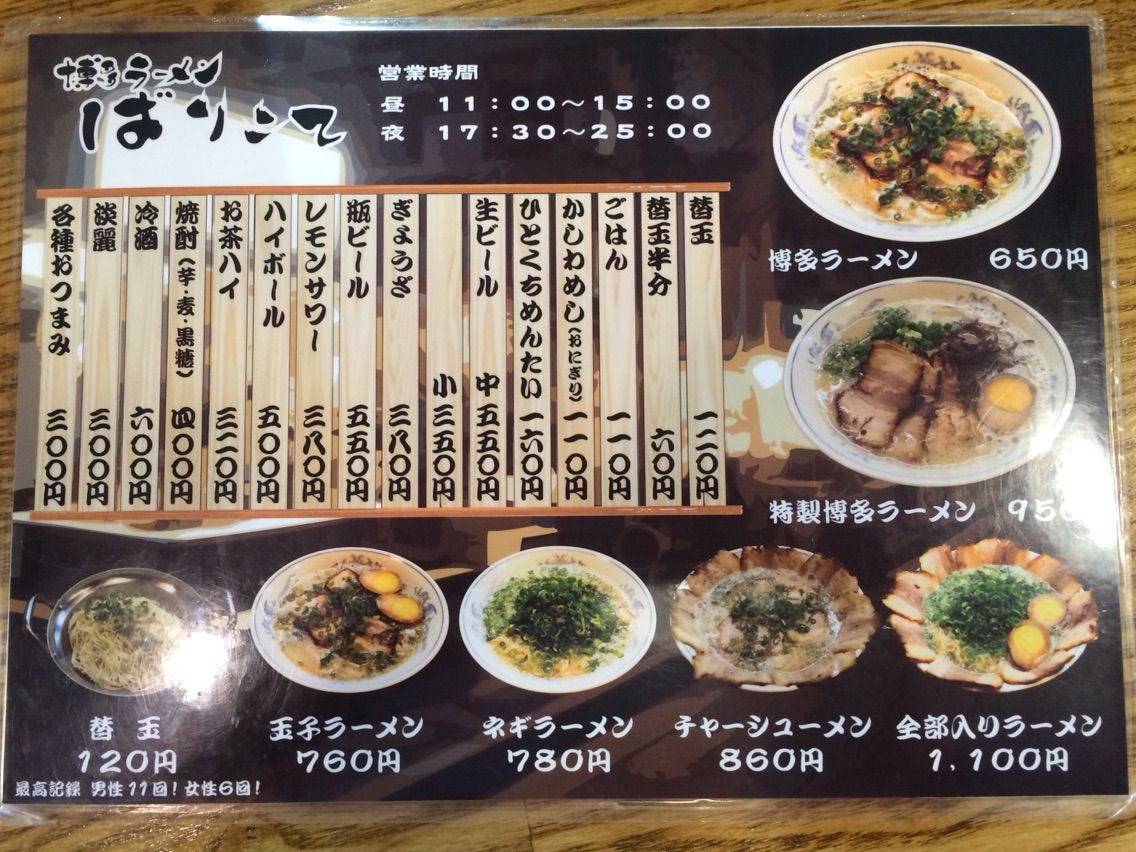 博多ラーメン
ばりこて
営業時間
昼 11:00～15:00
夜 17:30～25:00
博多ラーメン 650円
特製博多ラーメン 950
替玉 一二〇円
替玉半分 六〇円
ごはん 一一〇円
かしわめし(おにぎり) 一一〇円
ひとくちめんたい 一六〇円
生ビール 中 五五〇円
小 三五〇円
ぎょうざ 三八〇円
瓶ビール 五五〇円
レモンサワー 三八〇円
ハイボール 五〇〇円
お茶ハイ 三二〇円
焼酎(芋・麦・黒糖) 四〇〇円
冷酒 六〇〇円
淡麗 三〇〇円
各種おつまみ 三〇〇円
替玉
120円
玉子ラーメン
760円
ネギラーメン
780円
チャーシューメン
860円
全部入りラーメン
1,100円
最高記録 男性11回!女性6回!